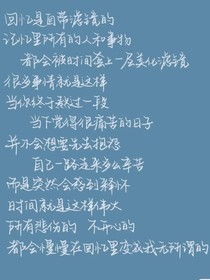 回忆是自带滤镜的
记忆里所有的人和事物
都会被时间蒙上一层美化滤镜
很多事情就是这样
当你终于熬过一段
当下觉得很痛苦的日子
并不会想要先去抱怨
自己一路走来多么辛苦
而是突然会感到释怀
时间就是这样伟大
所有悲伤的 不开心的
都会慢慢在回忆里变成无所谓的